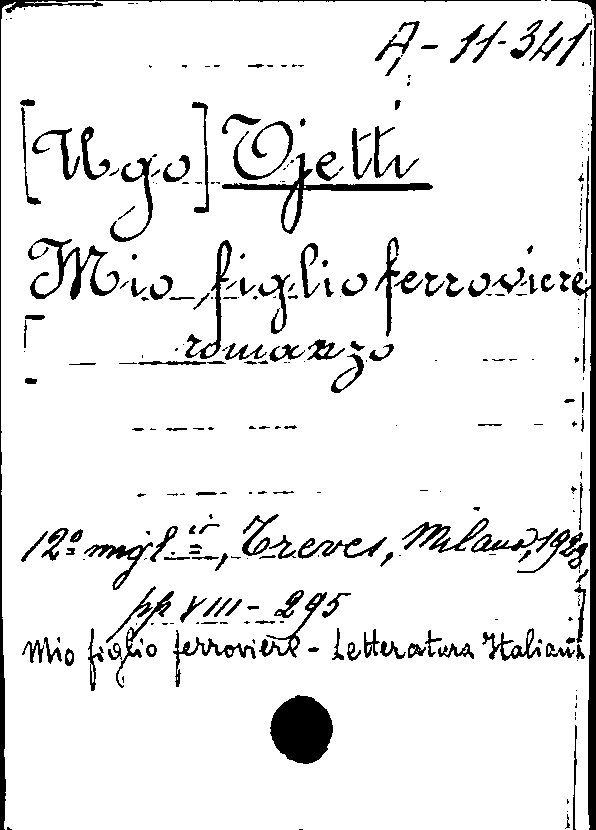 A-11-341
[Ugo] Ojetti
Mio figlio ferroviere
[ romanzo
12º migl.º, Treves, Milano, 1923
pp VIII-295
Mio figlio ferroviere - Letteratura Italiana